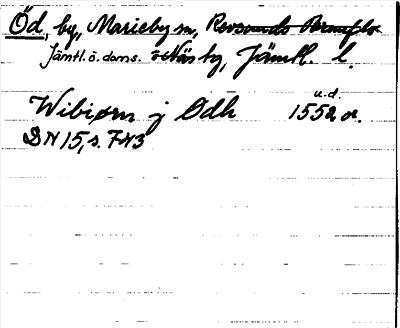 Öd, by, Marieby sn, Revsunds Brunflo
Jämtl. ö. doms. o Näs by, Jämtl. l.
u.d.
Wibiørn j Ødh 1552 or.
DN 15, s. 743